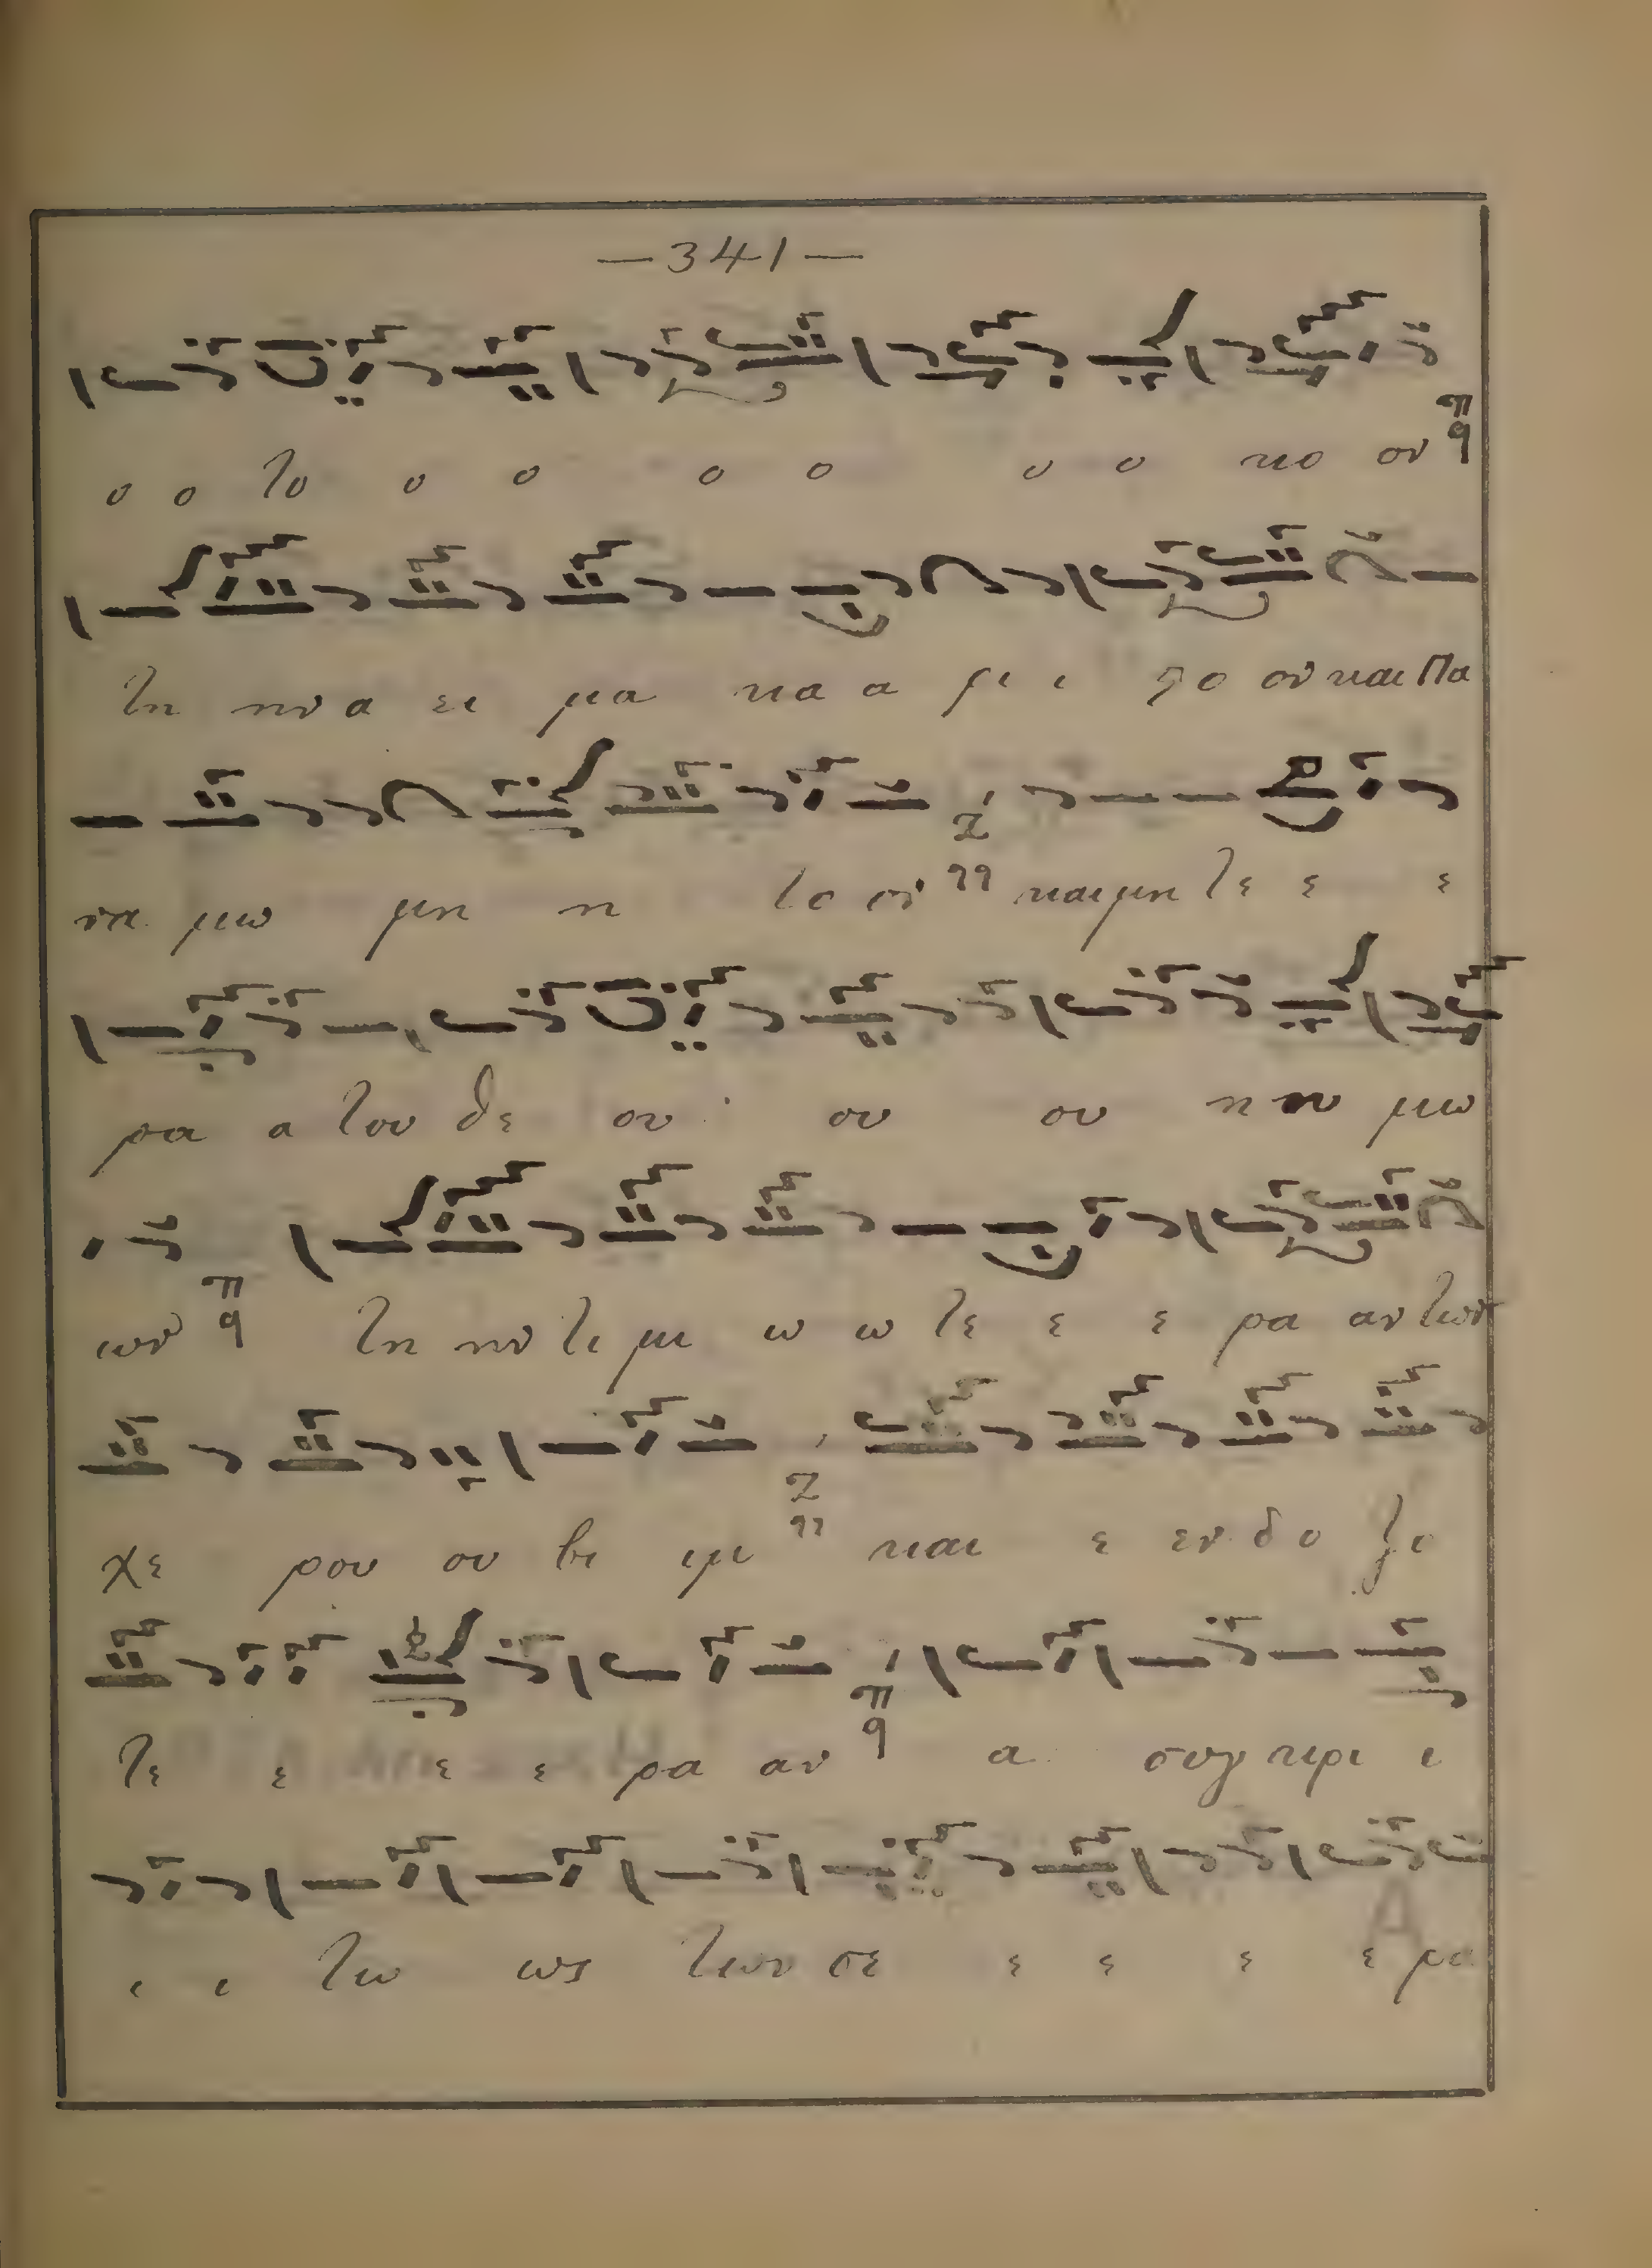 — 341 —
ο ο το ο ο ο ο ο ο κο ον
τη ην α ει μα κα α ρι ι στο ον και Πα
να μω μη η το ον και μη τε ε ε
ρα α του θε ου ου ου η ην μω
ων τη ην τι μι ω ω τε ε ε ρα αν των
χε ρου ου βι ιμ και ε εν δο ξο
τε ε ε ε ρα αν α συγ κρι ι
ι ι τω ως των σε ε ε ε ε ρα